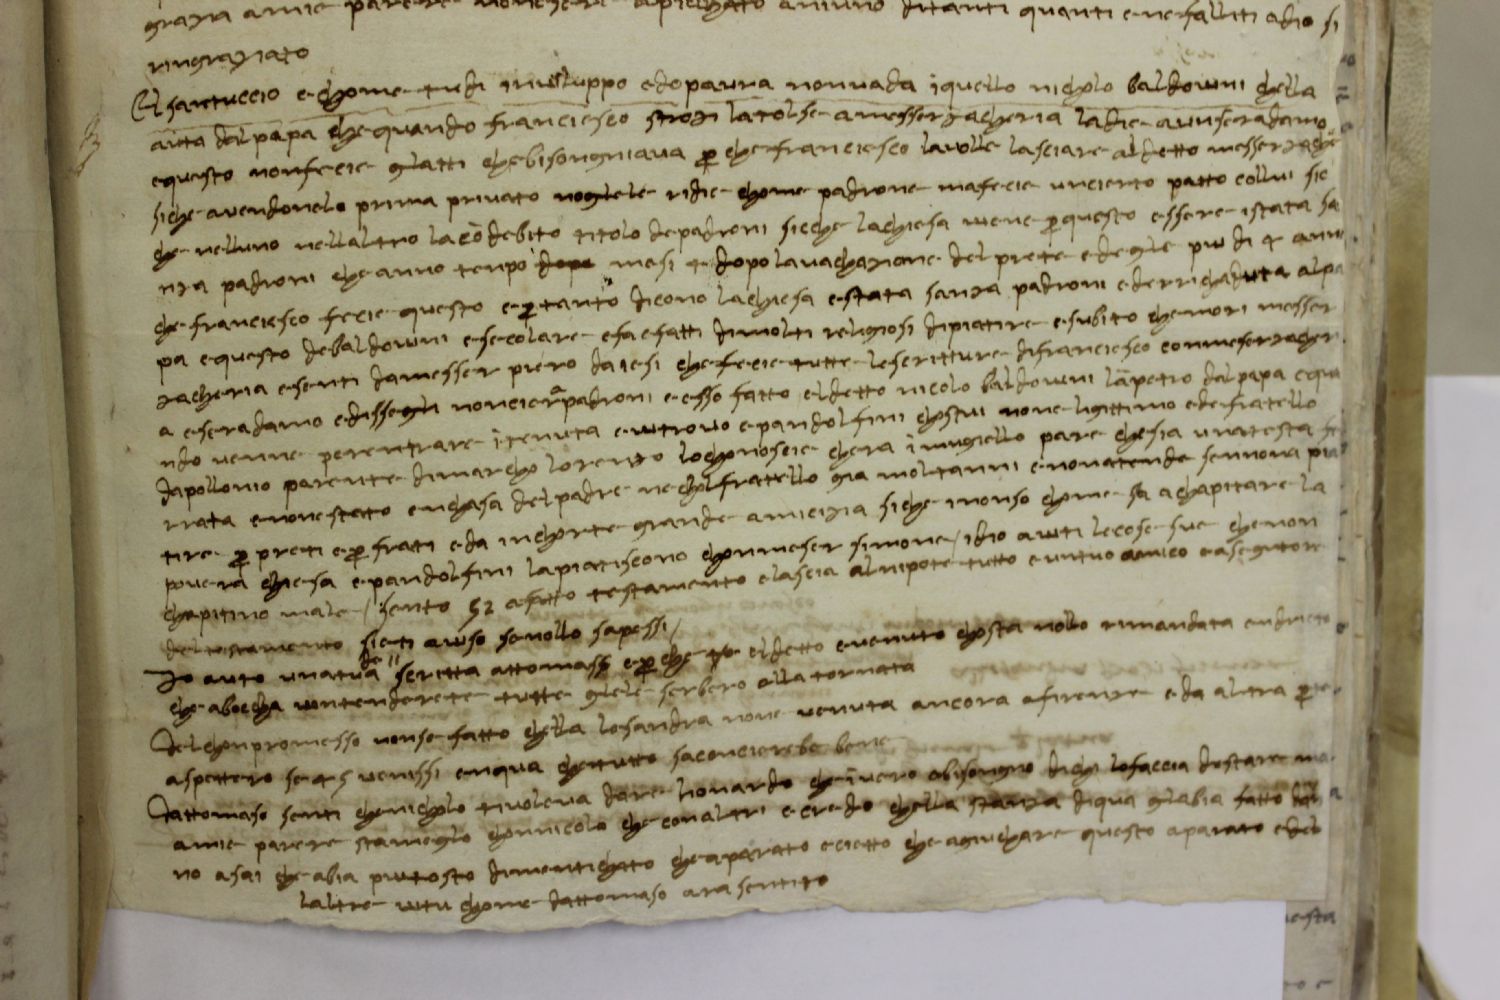 grazia a mie parere non sera apichato aniuno ditanti quanti e ne falliti adio si
ringraziato
El santuccio e chome tu di inviluppo edo paura nonvada i quello nicholo baldovini chella
auta dal papa che quando franciesco strozi la tolse a messer zacheria la die a unseradamo
e questo non fecie gliatti che bisongniava p che franciesco la volle lasciare al detto messer zache
siche avendonelo prima privato noglele ridie chome padrone ma fecie uncierto patto collui sie
che nelluno nellaltro la co debito titolo de padroni sicche la chiesa viene p questo essere istata sa
nza padroni che anno tenpo mesi 4 dopo la vachazione del prete ede gle piu di 4 anni
che franciesco fecie questo e p tanto dicono la chiesa e stata sanza padroni ede richaduta al pa
pa e questo de baldovini e secolare e fa efatti di molti religiosi di piatire e subito che mori messer
zacheria e senti da messer piero da iesi che fecie tutte le scritture di franciesco con meser zacher
a e seradamo e dissegli non ciera padroni e esso fatto el detto nicolo baldovini la inpetro dal papa e qua
ndo venne per entrare i tenuta e vi trovo e pandolfini chostui none ligittimo ede fratello
dapollonio parente di marcho lorenzo lo chonoscie chera i mugiello pare che sia una testa fe
rrata e none stato en chasa del padre ne chol fratello gia moltanni e non atende sennona pia
tire p preti e p frati e da in chorte grande amicizia siche i nonso chome sa a chapitare la
povera chiesa e pandolfini la piatiscono chon meser simone / idio aiuti le cose sue che non
chapitino male / sento a fatto testamento e lascia al nipote tutto e un tuo amico e asegutore
del testamento sieti aviso se nollo sapessi /
Io auto una tua de 11 scritta a tommaso e p che el detto e venuto chosta nollo rimandata endrieto
che abocha vintenderete tutte gliele serbero alla tornata
Del chonpromesso nonse fatto chella lesandra none venuta ancora a firenze e da altra p te
aspettero se 4 5 venissi en qua che tutto saconcierebe bene
Da tomaso senti che nicholo ti voleva dare lionardo che i vero abisongno di chi lo faccia destare ma
a mie parere sta meglo chon nicolo che con altri e credo chella stanza di qua gliabia fatto dan
no asai che abia piutosto dimentichato che aparato eccietto che a giuchare questo aparato e del
laltre vitu chome da tomaso ara sentito